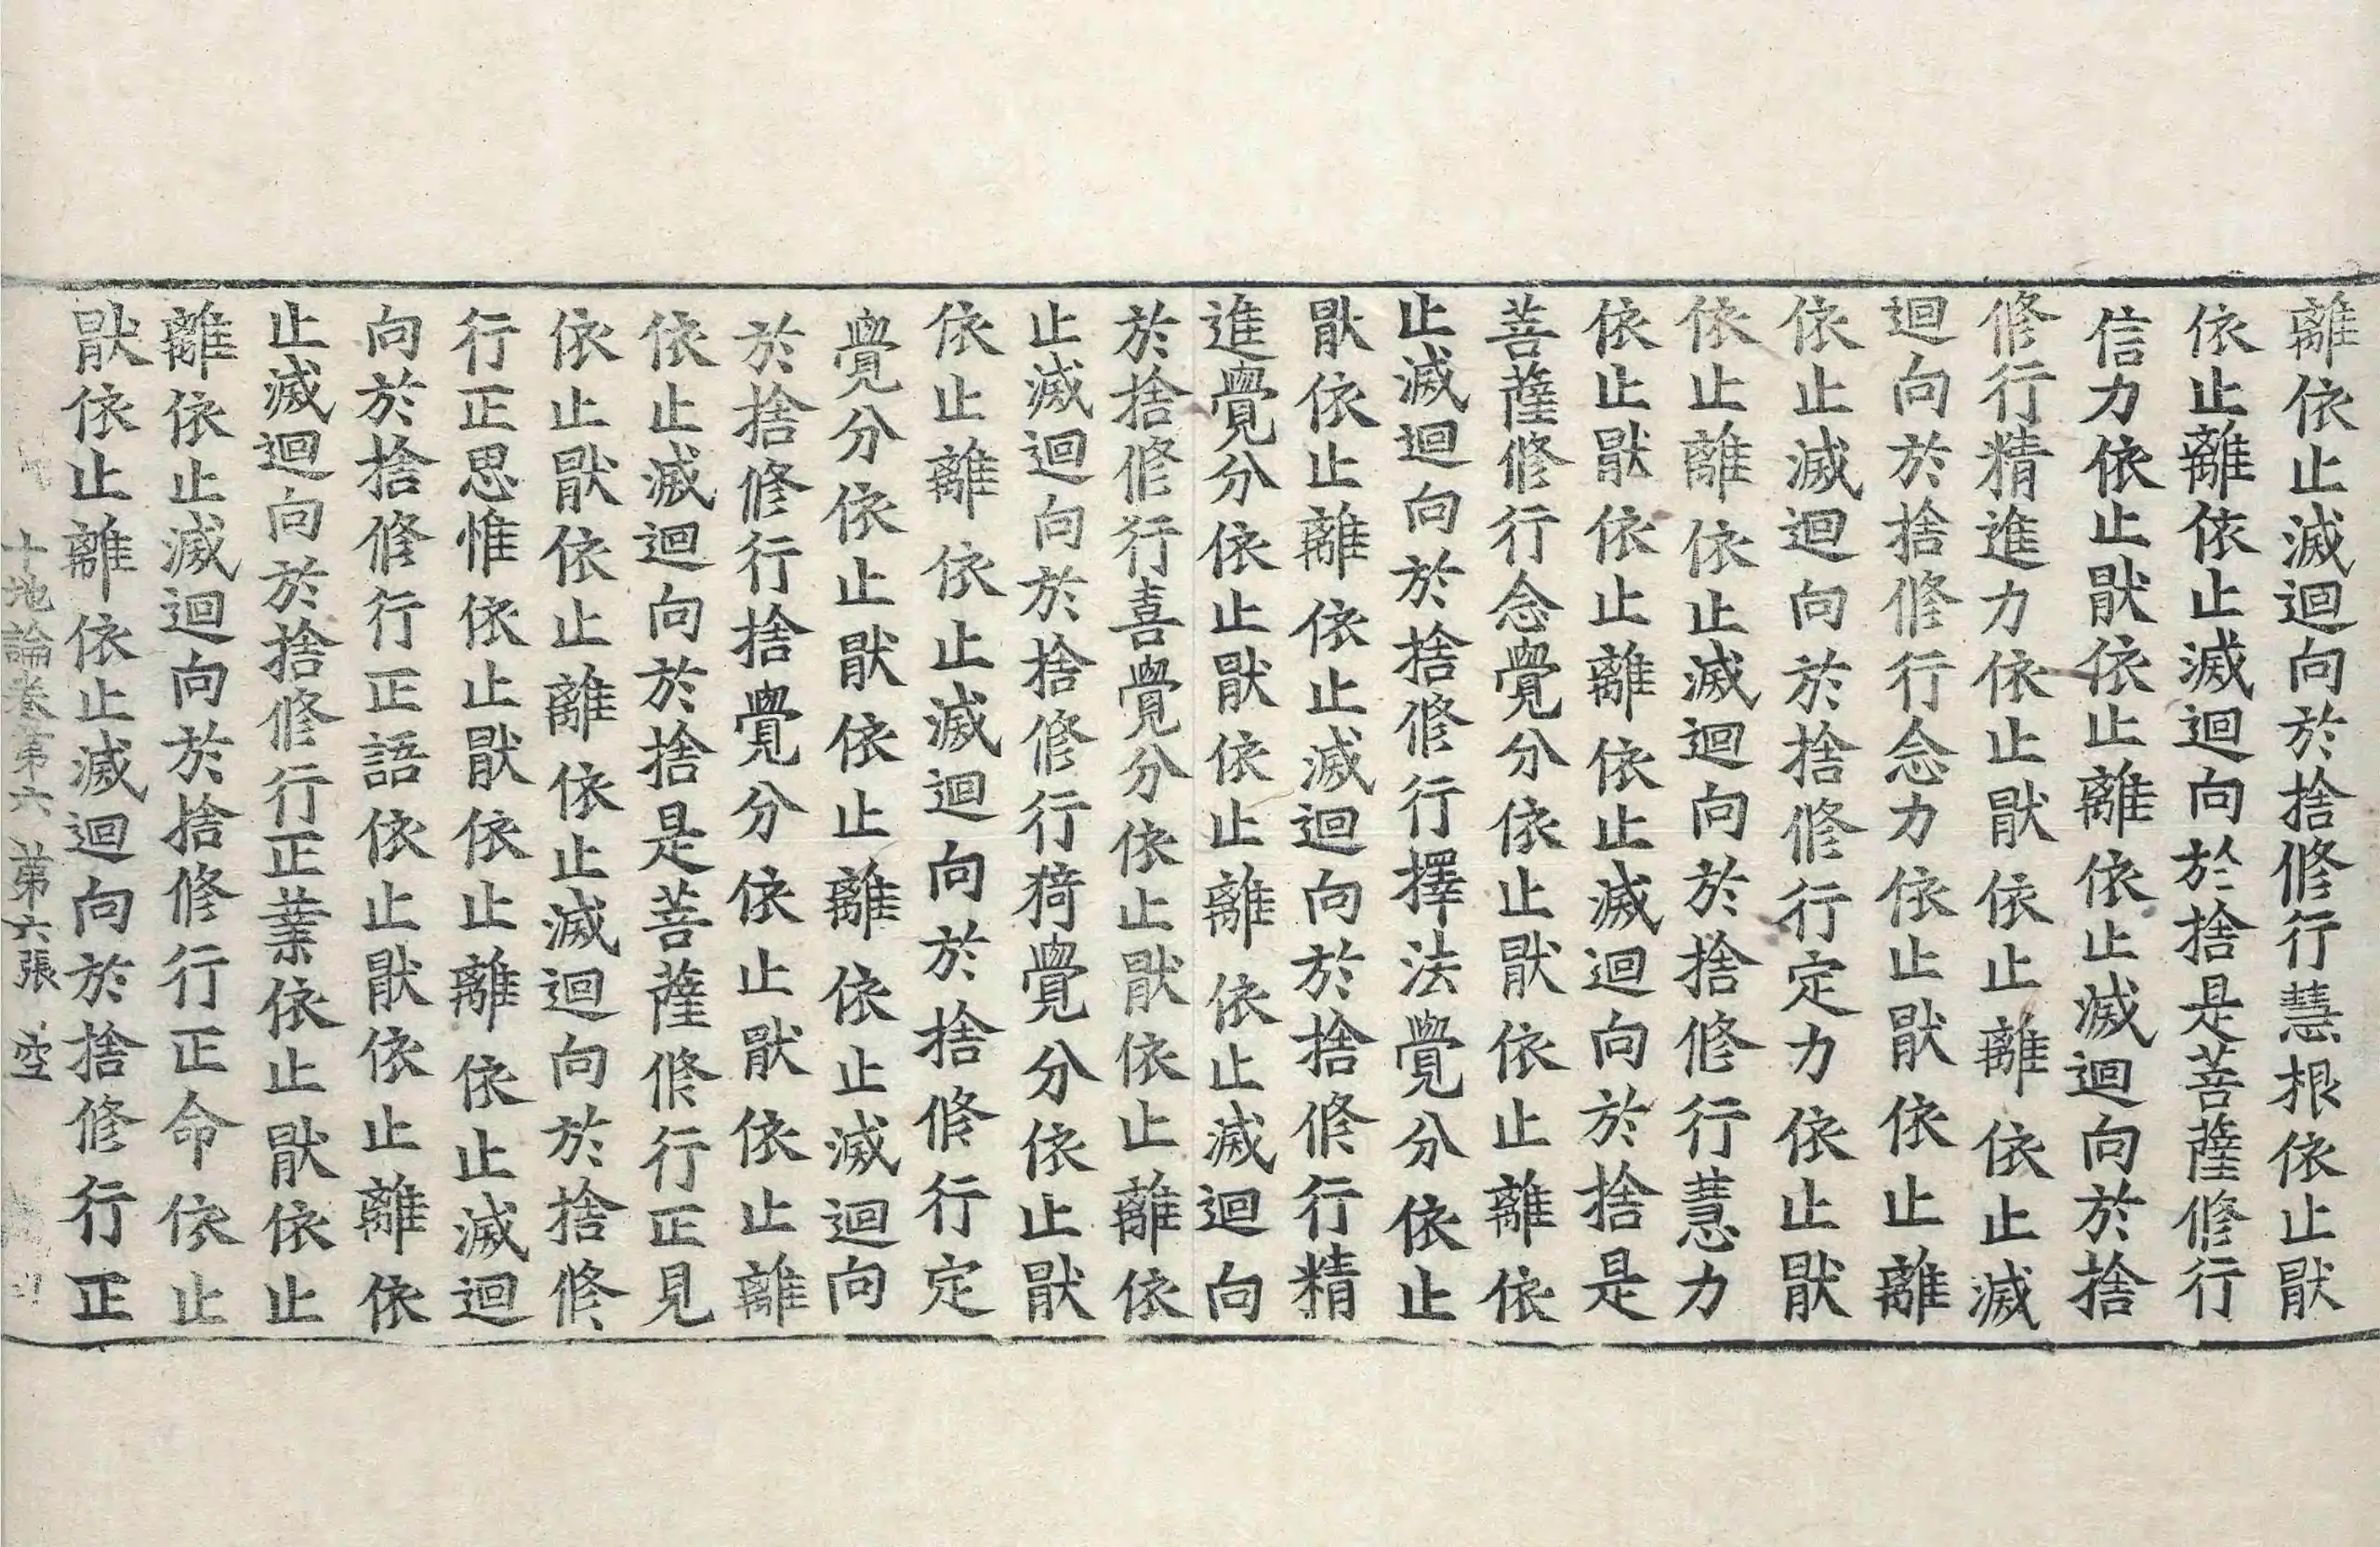 離依止滅迴向於捨修行慧根依止猒
依止離依止滅迴向於捨是菩薩修行
信力依止猒依止離依止滅迴向於捨
修行精進力依止猒依止離依止滅
迴向於捨修行念力依止猒依止離
依止滅迴向於捨修行定力依止猒
依止離依止滅迴向於捨修行慧力
依止猒依止離依止滅迴向於捨是
菩薩修行念覺分依止猒依止離依
止滅迴向於捨修行擇法覺分依止
猒依止離依止滅迴向於捨修行精
進覺分依止猒依止離依止滅迴向
於捨修行喜覺分依止猒依止離依
止滅迴向於捨修行猗覺分依止猒
依止離依止滅迴向於捨修行定
覺分依止猒依止離依止滅迴向
於捨修行捨覺分依止猒依止離
依止滅迴向於捨是菩薩修行正見
依止猒依止離依止滅迴向於捨修
行正思惟依止猒依止離依止滅迴
向於捨修行正語依止猒依止離依
止滅迴向於捨修行正業依止猒依止
離依止滅迴向於捨修行正命依止
猒依止離依止滅迴向於捨修行正
十地論卷第六 第六張 空